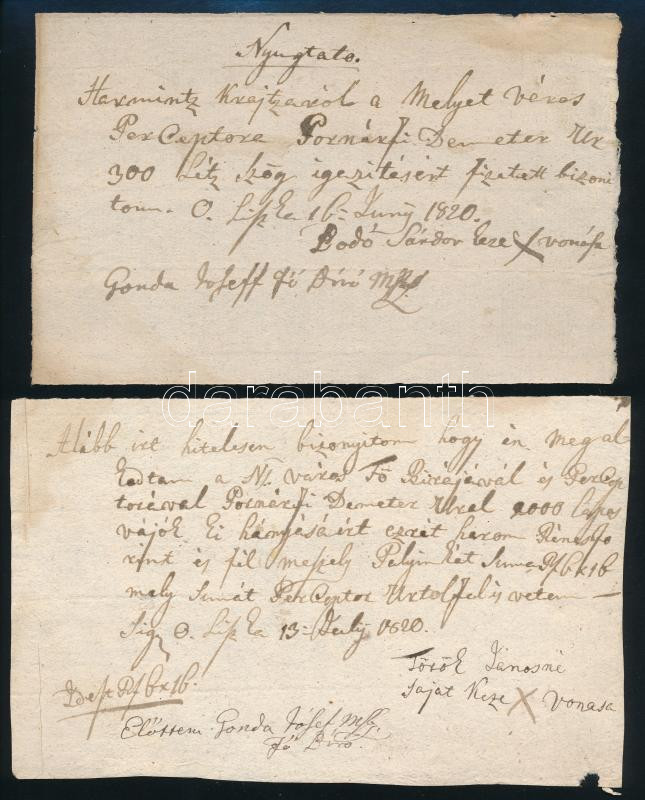 Nyugtato.
Harmintz Krajtzárol a Melyet város
PerCeptora Pornárfi Demeter Ur
300 Létz szög igazitásért fizetett bizoni
tom. O. Liszka 16= Juny 1820.
Dodó Sándor keze X vonása
Gonda Joseff Fő Biró
darabanth
Alább irt hitelesen bizonyitom hogy én megal
kudtam a N. város Fő Birájával és PerCep
torával Pornárfi Demeter Ural 2000 lapos
vájók ki hányásáért ezrét harom Rénes fo
rint és fél meszely Pályinkát Suma Rf 6 x 16
mely Sumát PerCeptor Urtol fel is vetem —
Sig O. Liszka 13= July 1820.
Török Jánosné
Idest Rf 6 x 16.
saját Keze X vonasa
Előttem Gonda Jósef
Fő Biró